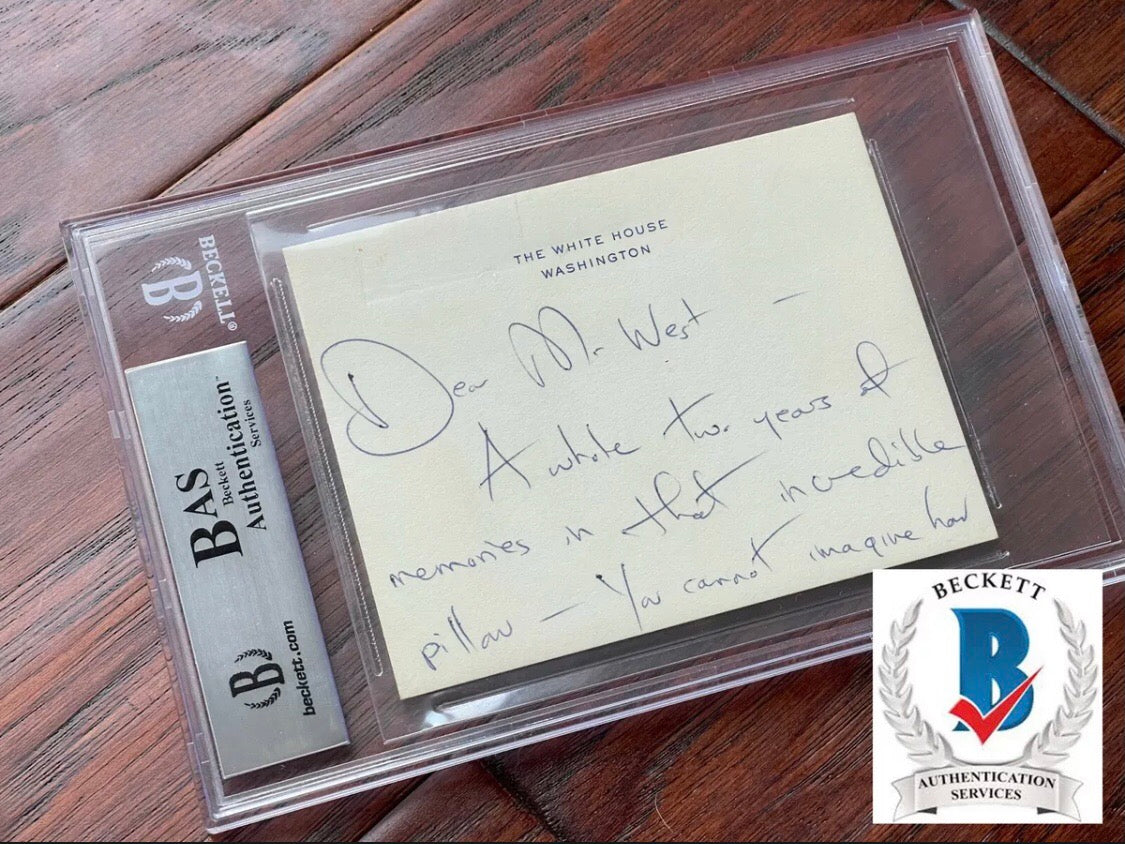 BECKETT®
B
BAS
Beckett
Authentication™
Services
B
beckett.com
THE WHITE HOUSE
WASHINGTON
Dear Mr West —
A whole two years of
memories in that incredible
pillow — You cannot imagine how
BECKETT
B
AUTHENTICATION
SERVICES